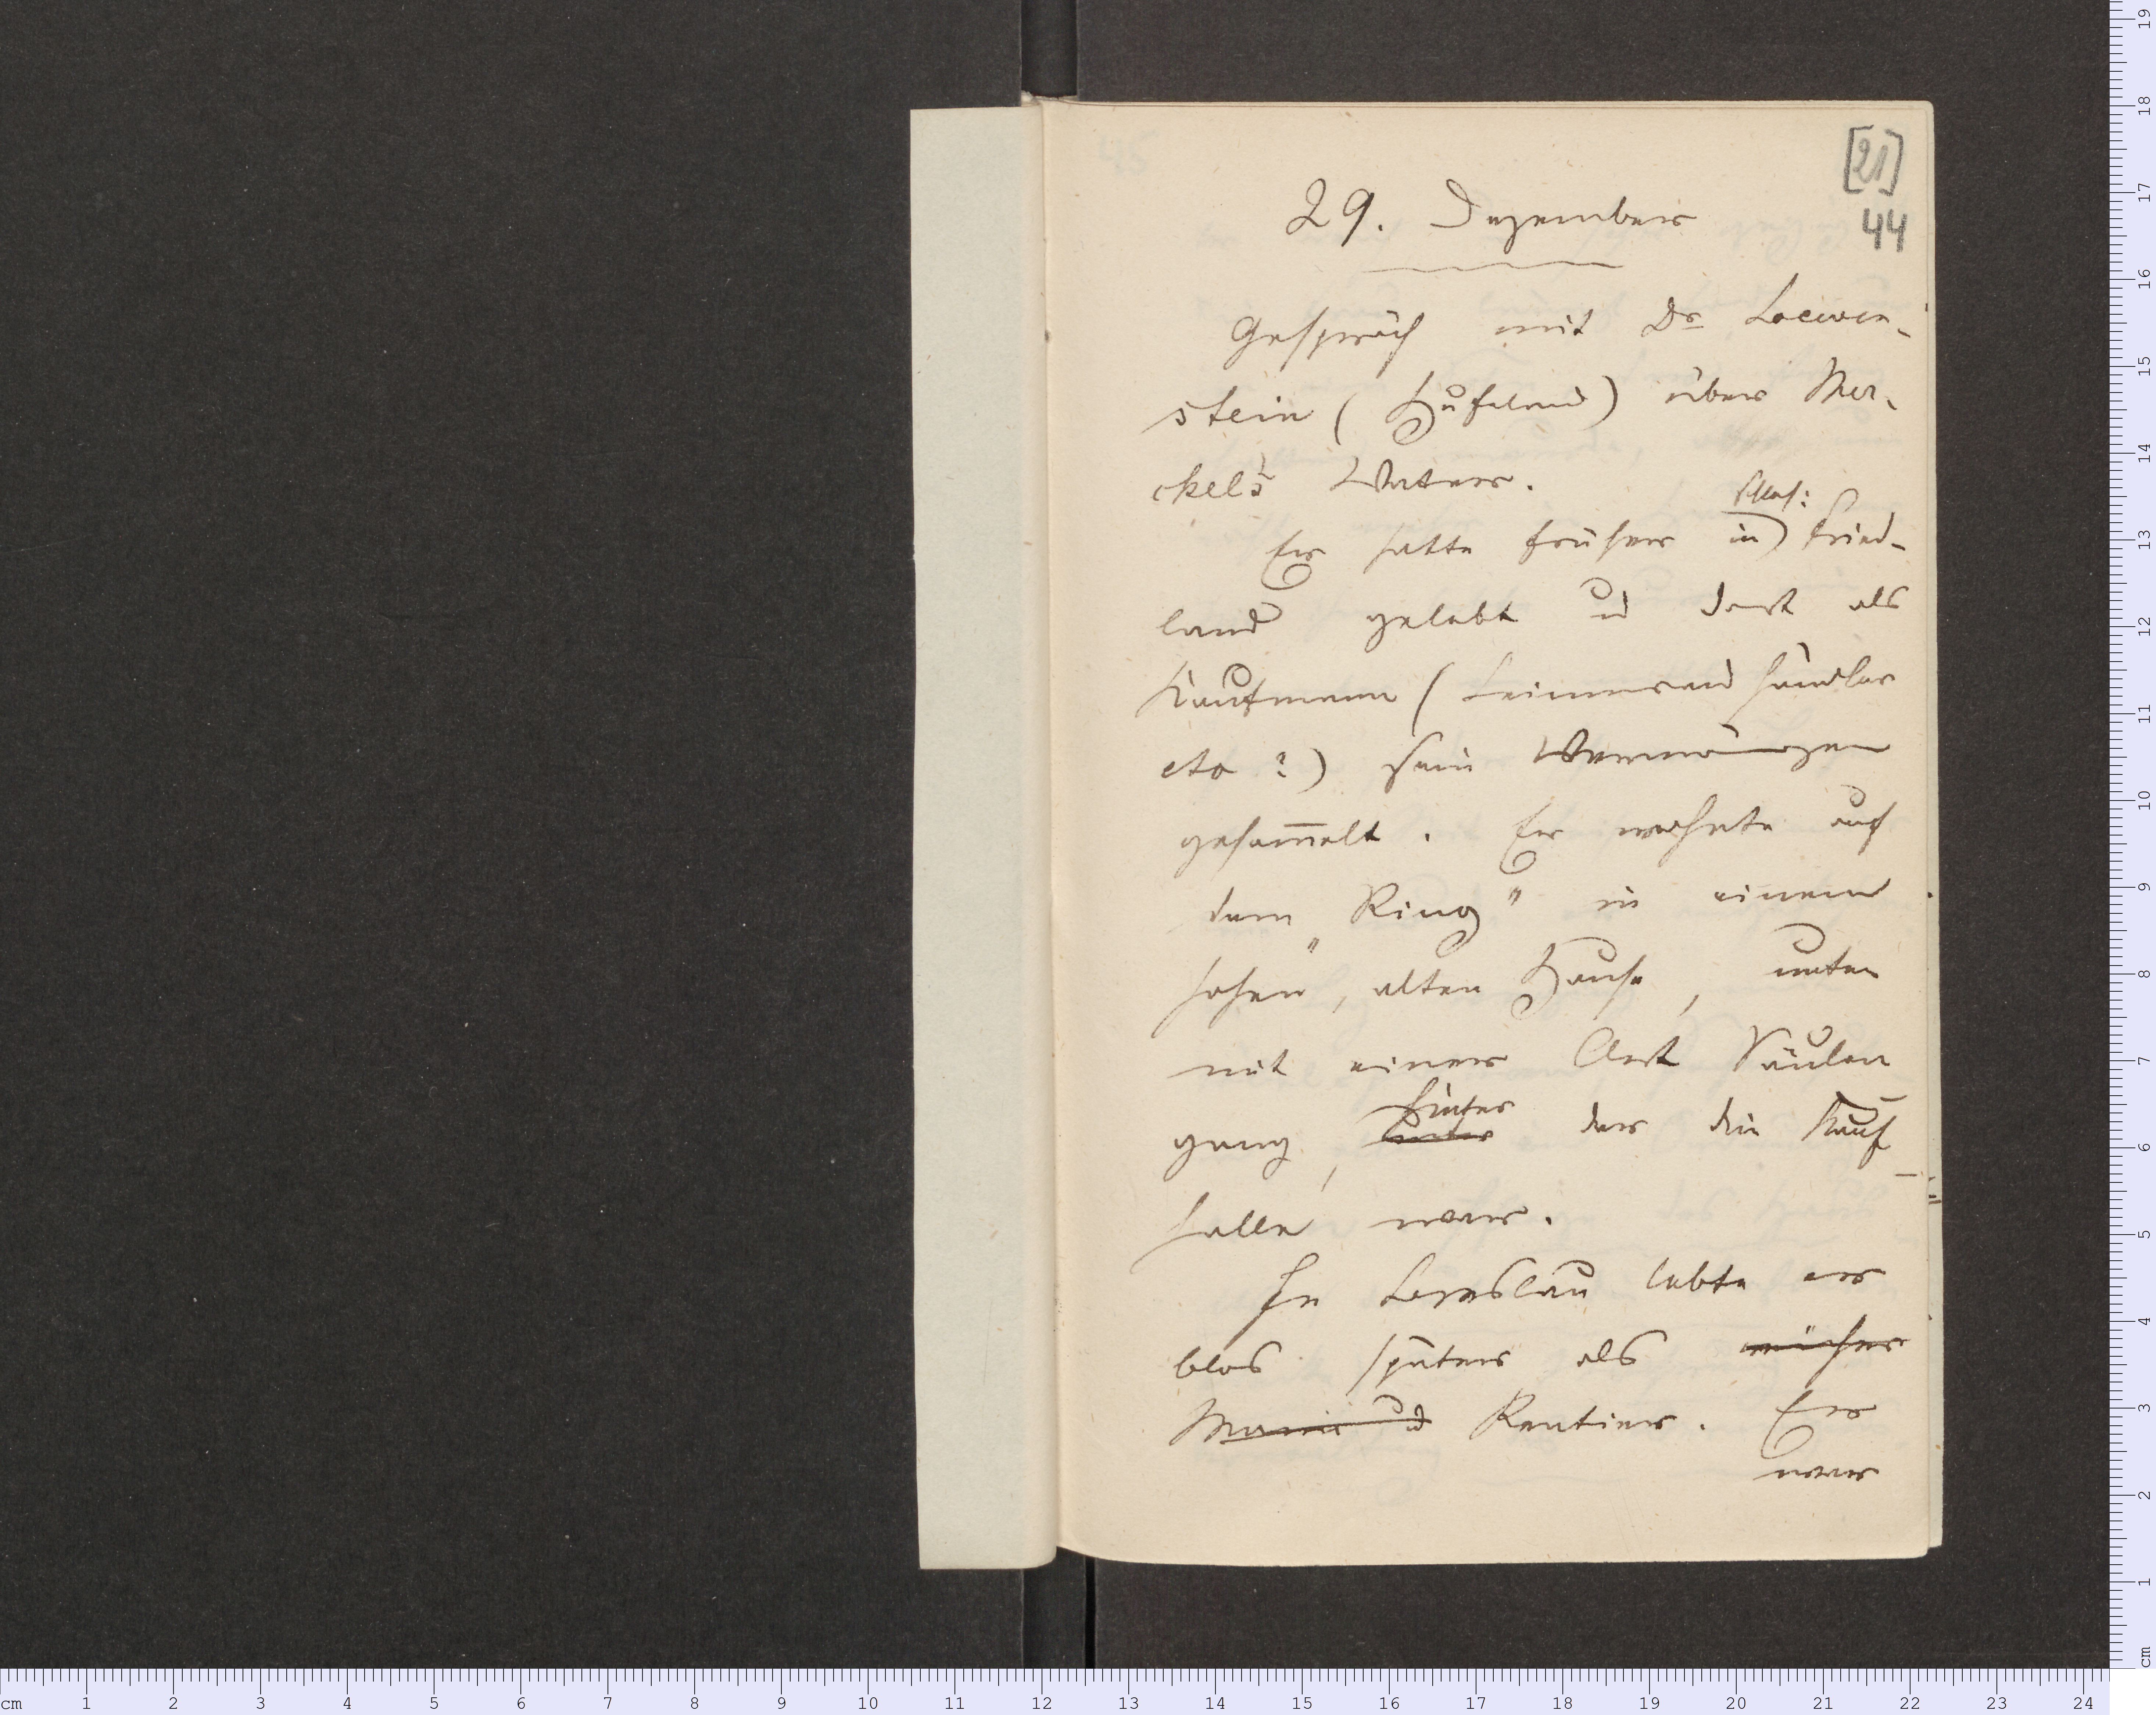 [21]
44
29. Dezember
Gespräch mit Dr Loewen-
stein (Hufeland) über Mer-
ckel's Vater.
Schles:
Er hatte früher in) Fried-
land gelebt ud dort als
Kaufmann (Leinwandhändler
etc ?) sein Vermögen
gesam̄elt. Er wohnte auf
dem „Ring" in einem
hohen, alten Hause, unten
mit einer Art Säulen
hinter
gang, unter der die Kauf-
halle war.
In Breslau lebte er
blos später als
und Rentier. Er
war